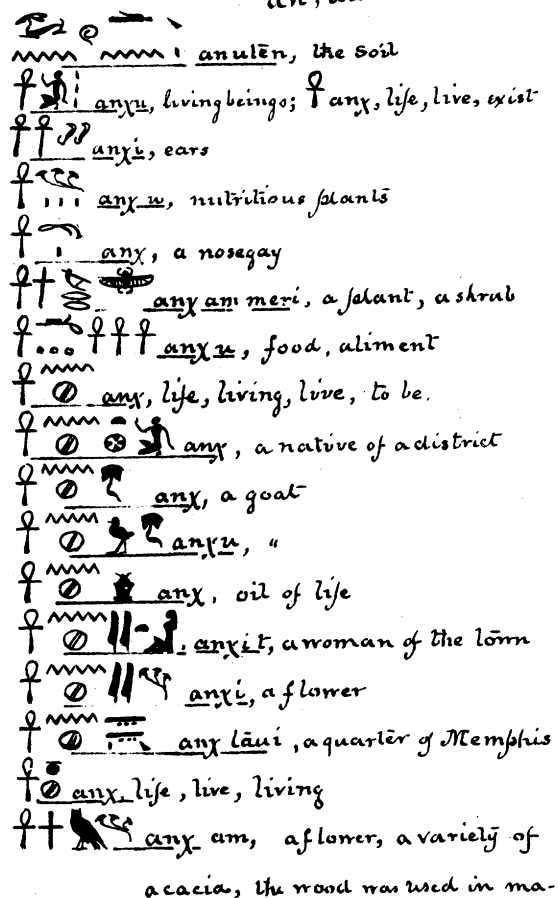 anutēn, the soil
anχu, living beings; ☥ anχ, life, live, exist
anχi, ears
anχ u, nutritious plants
anχ, a nosegay
anχ am meri, a plant, a shrub
anχ u, food, aliment
anχ, life, living, live, to be.
anχ, a native of a district
anχ, a goat
anχu, "
anχ, oil of life
anχit, a woman of the town
anχi, a flower
anχ tāui, a quarter of Memphis
anχ, life, live, living
anχ am, a flower, a variety of
acacia, the wood was used in ma-